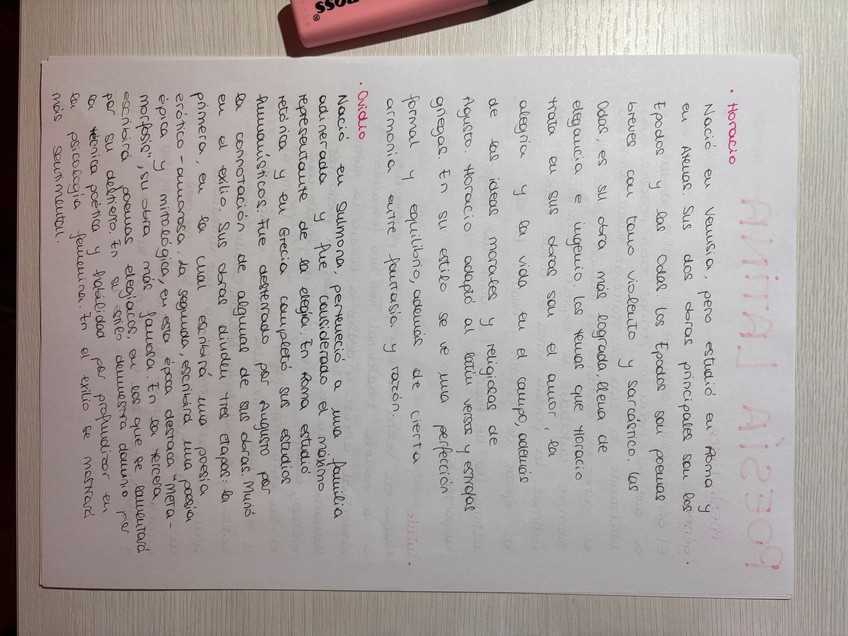 · Horacio
Nació en Venusia, pero estudió en Roma y
en Atenas. Sus dos obras principales son los
Epodos y las Odas. Los Epodos son poemas
breves con tono violento y sarcástico. Las
Odas, es su obra más lograda, llena de
elegancia e ingenio. Los temas que Horacio
trata en sus obras son el amor, la
alegría y la vida en el campo, además
de las ideas morales y religiosas de
Agusto. Horacio adaptó al latín versos y estrofas
griegas. En su estilo se ve una perfección
formal y equilibrio, además de cierta
armonía entre fantasía y razón.
· Ovidio
Nació en Sulmona, perteneció a una familia
adinerada y fue considerado el máximo
representante de la elegía. En Roma estudió
retórica y en Grecia completó sus estudios
humanísticos. Fue desterrado por Augusto por
la connotación de algunas de sus obras. Murió
en el exilio. Sus obras dividen tres etapas: la
primera, en la cual escribirá una poesía
erótico-amorosa. La segunda, escribirá una poesía
épica y mitológica, en esta época destaca "Meta-
morfosis", su obra más famosa. En la tercera,
escribirá poemas elegíacos, en los que se lamentará
por su destierro. En su estilo demuestra dominio por
la técnica poética y habilidad por profundizar en
la psicología femenina. En el exilio se mostrará
más sentimental.
POESÍA LATINA
BOSS®